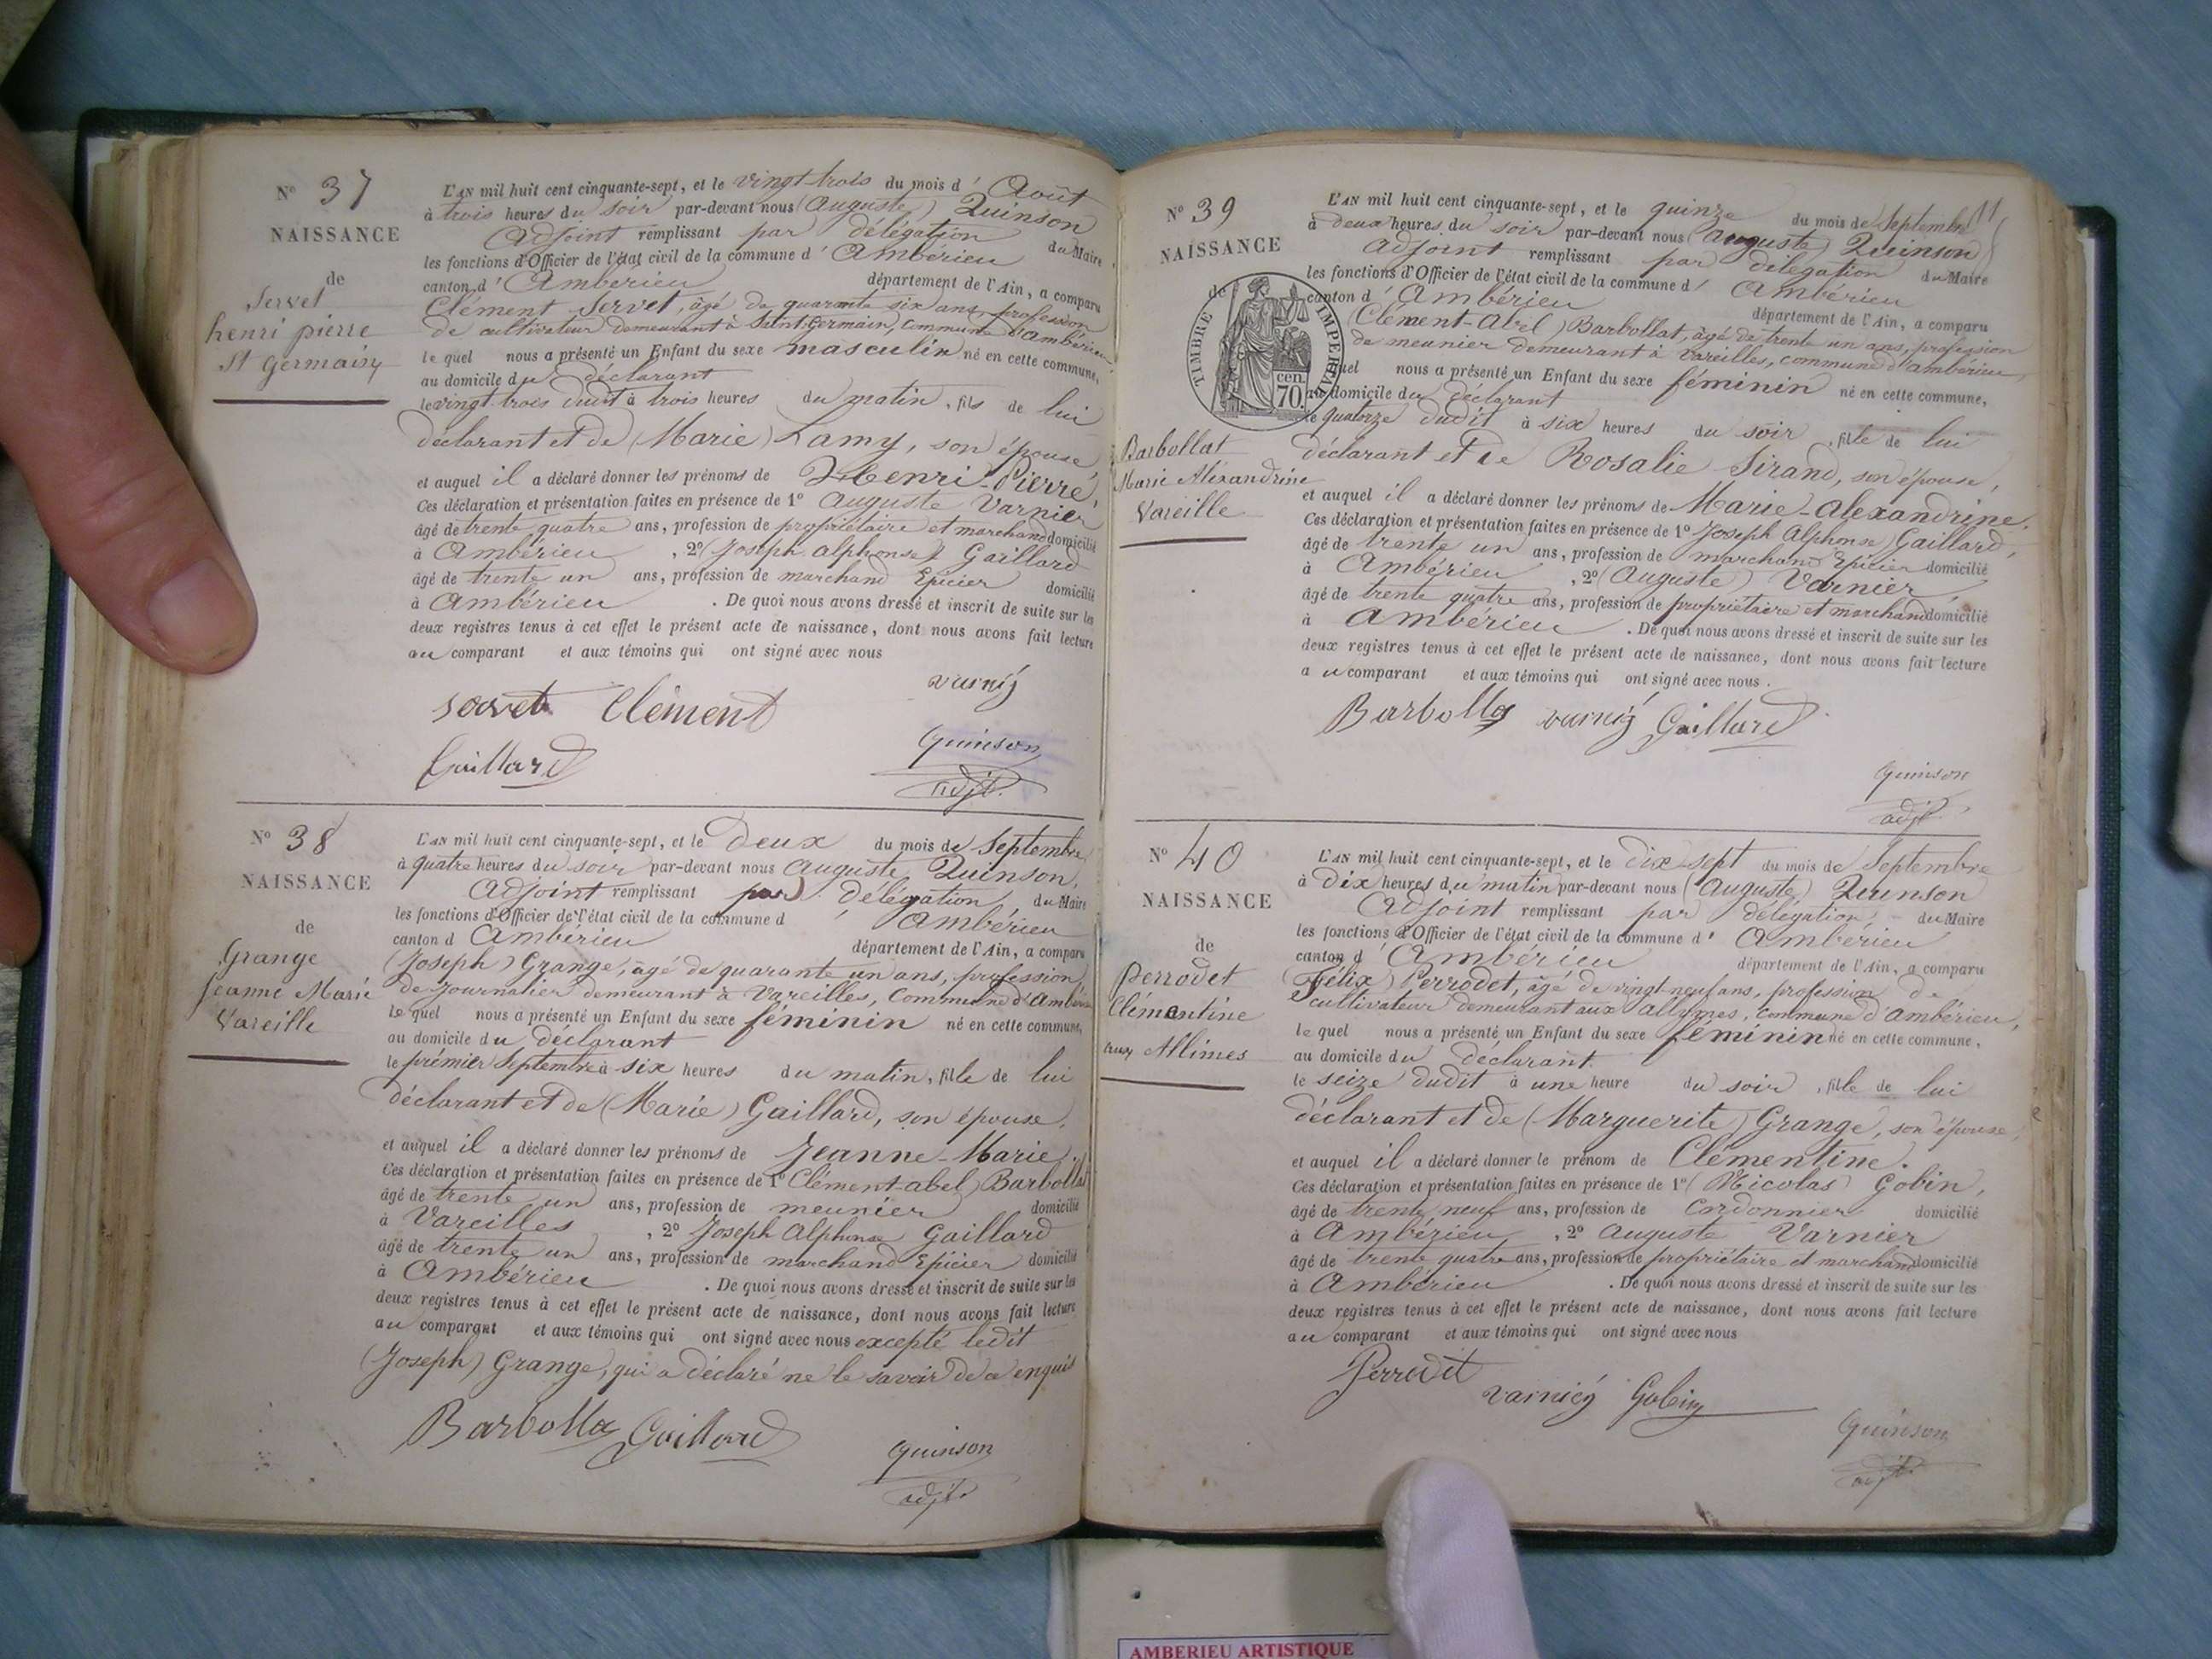 N° 37
NAISSANCE
de
Servet
henri pierre
St Germain
L'AN mil huit cent cinquante-sept, et le vingt-trois du mois d' Août
à trois heures du soir par-devant nous (Auguste) Quinson
Adjoint remplissant par délégation du Maire
les fonctions d'Officier de l'état civil de la commune d' Ambérieu
canton d' Ambérieu département de l'Ain, a comparu
Clément Servet, âgé de quarante six ans, profession
de cultivateur demeurant à Saint-Germain, commune d'ambérieu
le quel nous a présenté un Enfant du sexe masculin né en cette commune,
au domicile du déclarant
le vingt-trois dudit à trois heures du matin, fils de lui
déclarant et de (Marie) Lamy, son épouse,
et auquel il a déclaré donner les prénoms de Henri-Pierre,
Ces déclaration et présentation faites en présence de 1° Auguste Varnier
âgé de trente quatre ans, profession de propriétaire et marchand domicilié
à Ambérieu, 2° (Joseph alphonse) Gaillard
âgé de trente un ans, profession de marchand Epicier domicilié
à Ambérieu. De quoi nous avons dressé et inscrit de suite sur les
deux registres tenus à cet effet le présent acte de naissance, dont nous avons fait lecture
au comparant et aux témoins qui ont signé avec nous
varnier
servet Clément
Gaillard
Quinson
adjt.
N° 38
NAISSANCE
de
Grange
Jeanne Marie
Vareille
L'AN mil huit cent cinquante-sept, et le deux du mois de Septembre
à quatre heures du soir par-devant nous Auguste Quinson,
Adjoint remplissant par délégation du Maire
les fonctions d'Officier de l'état civil de la commune d' Ambérieu
canton d Ambérieu département de l'Ain, a comparu
(Joseph) Grange, âgé de quarante un ans, profession
de journalier demeurant à Vareilles, Commune d'Ambérieu
le quel nous a présenté un Enfant du sexe féminin né en cette commune,
au domicile du déclarant
le prémier Septembre à six heures du matin, fille de lui
déclarant et de (Marie) Gaillard, son épouse,
et auquel il a déclaré donner les prénoms de Jeanne-Marie.
Ces déclaration et présentation faites en présence de 1° Clément-abel) Barbollat
âgé de trente un ans, profession de meunier domicilié
à Vareilles, 2° Joseph Alphonse Gaillard
âgé de trente un ans, profession de marchand Epicier domicilié
à Ambérieu. De quoi nous avons dressé et inscrit de suite sur les
deux registres tenus à cet effet le présent acte de naissance, dont nous avons fait lecture
au comparant et aux témoins qui ont signé avec nous excepté ledit
(Joseph) Grange, qui a déclaré ne le savoir de ce enquis
Barbolla Gaillard
Quinson
adjt.
N° 39
NAISSANCE
de
TIMBRE IMPERIAL
70 cen.
Barbollat
Marie Aléxandrine
Vareille
11
L'AN mil huit cent cinquante-sept, et le quinze du mois de Septembre
à deux heures du soir par-devant nous (Auguste) Quinson
Adjoint remplissant par délégation du Maire
les fonctions d'Officier de l'état civil de la commune d' Ambérieu
canton d' Ambérieu département de l'Ain, a comparu
(Clément-Abel) Barbollat, âgé de trente un ans, profession
de meunier demeurant à Vareilles, commune d'ambérieu
quel nous a présenté un Enfant du sexe féminin né en cette commune,
au domicile du déclarant
le quatorze dudit à six heures du soir, fille de lui
déclarant et de Rosalie Sirand, son épouse,
et auquel il a déclaré donner les prénoms de Marie-Alexandrine.
Ces déclaration et présentation faites en présence de 1° Joseph Alphonse) Gaillard,
âgé de trente un ans, profession de marchand Epicier domicilié
à Ambérieu, 2° (Auguste) Varnier,
âgé de trente quatre ans, profession de propriétaire et marchand domicilié
à Ambérieu. De quoi nous avons dressé et inscrit de suite sur les
deux registres tenus à cet effet le présent acte de naissance, dont nous avons fait lecture
au comparant et aux témoins qui ont signé avec nous.
Barbolla varnier Gaillard
Quinson
adjt.
N° 40
NAISSANCE
de
perrodet
Clémentine
aux Allimes
L'AN mil huit cent cinquante-sept, et le dix-sept du mois de Septembre
à dix heures du matin par-devant nous (Auguste) Quinson
Adjoint remplissant par délégation du Maire
les fonctions d'Officier de l'état civil de la commune d' Ambérieu
canton d' Ambérieu département de l'Ain, a comparu
(Félix) Perrodet, âgé de vingt-neuf ans, profession de
cultivateur demeurant aux allymes, commune d'ambérieu,
le quel nous a présenté un Enfant du sexe féminin né en cette commune,
au domicile du déclarant.
le seize dudit à une heure du soir, fille de lui
déclarant et de (Marguerite) Grange, son épouse,
et auquel il a déclaré donner le prénom de Clémentine.
Ces déclaration et présentation faites en présence de 1° (Nicolas) Gobin,
âgé de trente neuf ans, profession de Cordonnier domicilié
à Ambérieu, 2° Auguste Varnier
âgé de trente quatre ans, profession de propriétaire et marchand domicilié
à Ambérieu. De quoi nous avons dressé et inscrit de suite sur les
deux registres tenus à cet effet le présent acte de naissance, dont nous avons fait lecture
au comparant et aux témoins qui ont signé avec nous
Perrodet varnier Gobin
Quinson
adjt.
AMBERIEU ARTISTIQUE